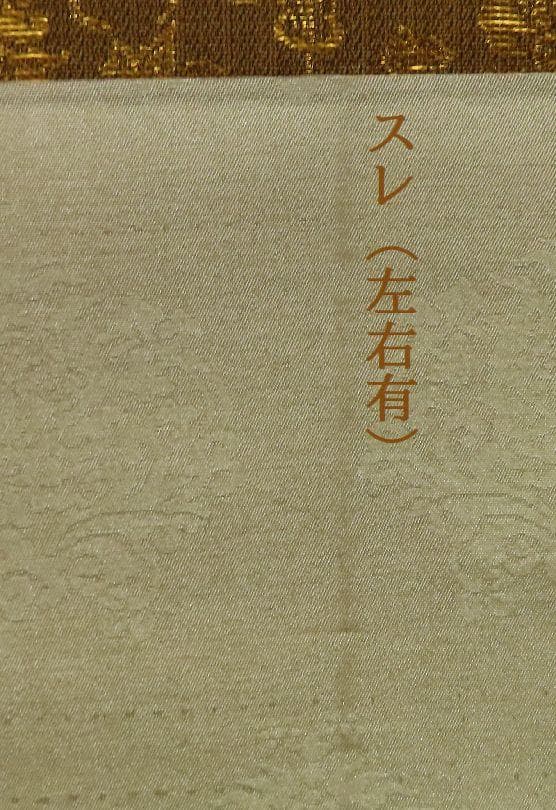 スレ（左右有）